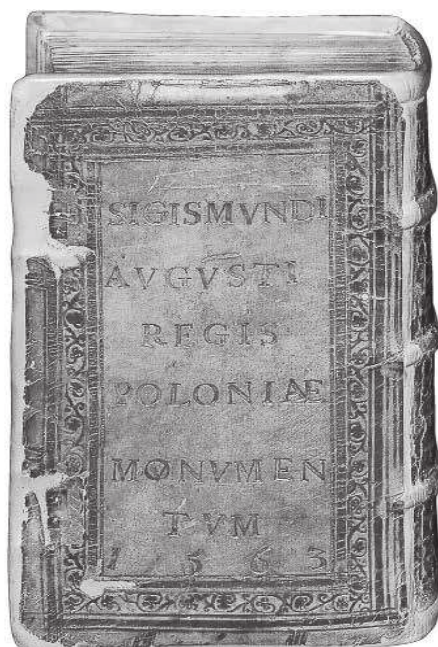 SIGISMVNDI
AVGVSTI
REGIS
POLONIÆ
MONVMEN
TVM
1563